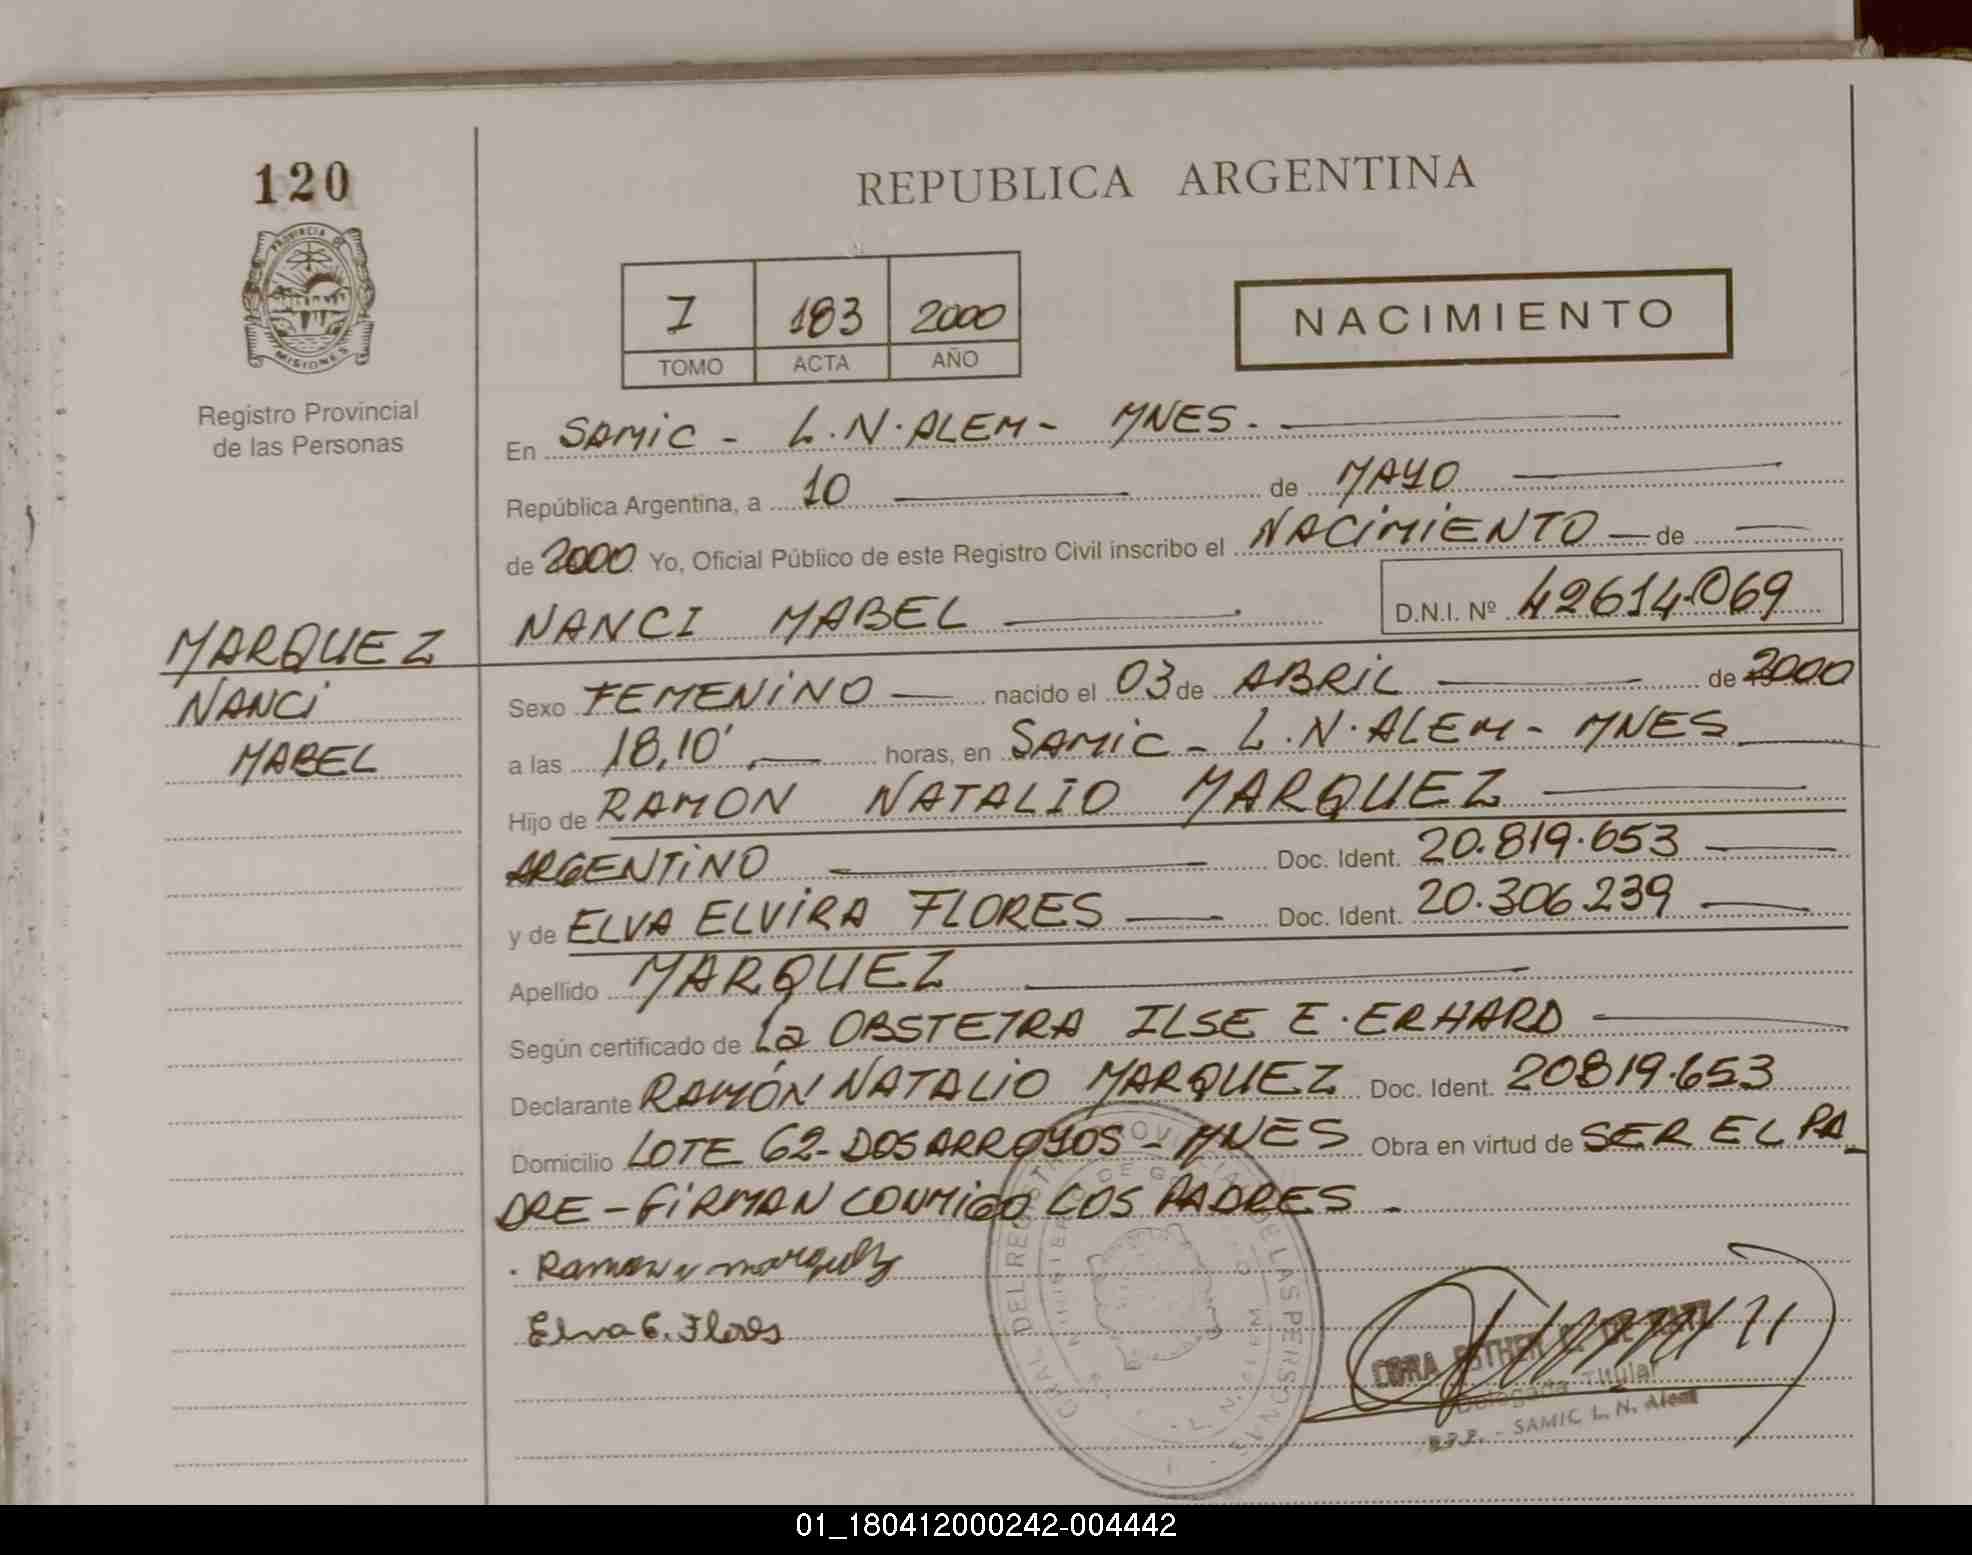 120
REPUBLICA ARGENTINA
PROVINCIA DE
MISIONES
I 183 2000
TOMO ACTA AÑO
NACIMIENTO
Registro Provincial
de las Personas
En SAMIC - L.N.ALEM - MNES.
República Argentina, a 10 de MAYO
de 2000 Yo, Oficial Público de este Registro Civil inscribo el NACIMIENTO de
NANCI MABEL D.N.I. Nº 42614.069
MARQUEZ
NANCI
MABEL
Sexo FEMENINO nacido el 03 de ABRIL de 2000
a las 18,10' horas, en SAMIC - L.N.ALEM - MNES
Hijo de RAMON NATALIO MARQUEZ
ARGENTINO Doc. Ident. 20.819.653
y de ELVA ELVIRA FLORES Doc. Ident. 20.306.239
Apellido MARQUEZ
Según certificado de La OBSTETRA ILSE E. ERHARD
Declarante RAMÓN NATALIO MARQUEZ Doc. Ident. 20819.653
Domicilio LOTE 62- DOS ARROYOS - MNES Obra en virtud de SER EL PA_
DRE - FIRMAN CONMIGO LOS PADRES -
Ramon N marquez
Elva E. Flores
ESTHER
Delegada Titular
SAMIC L. N. Alem
DEL REGISTRO DE LAS PERSONAS
01_180412000242-004442